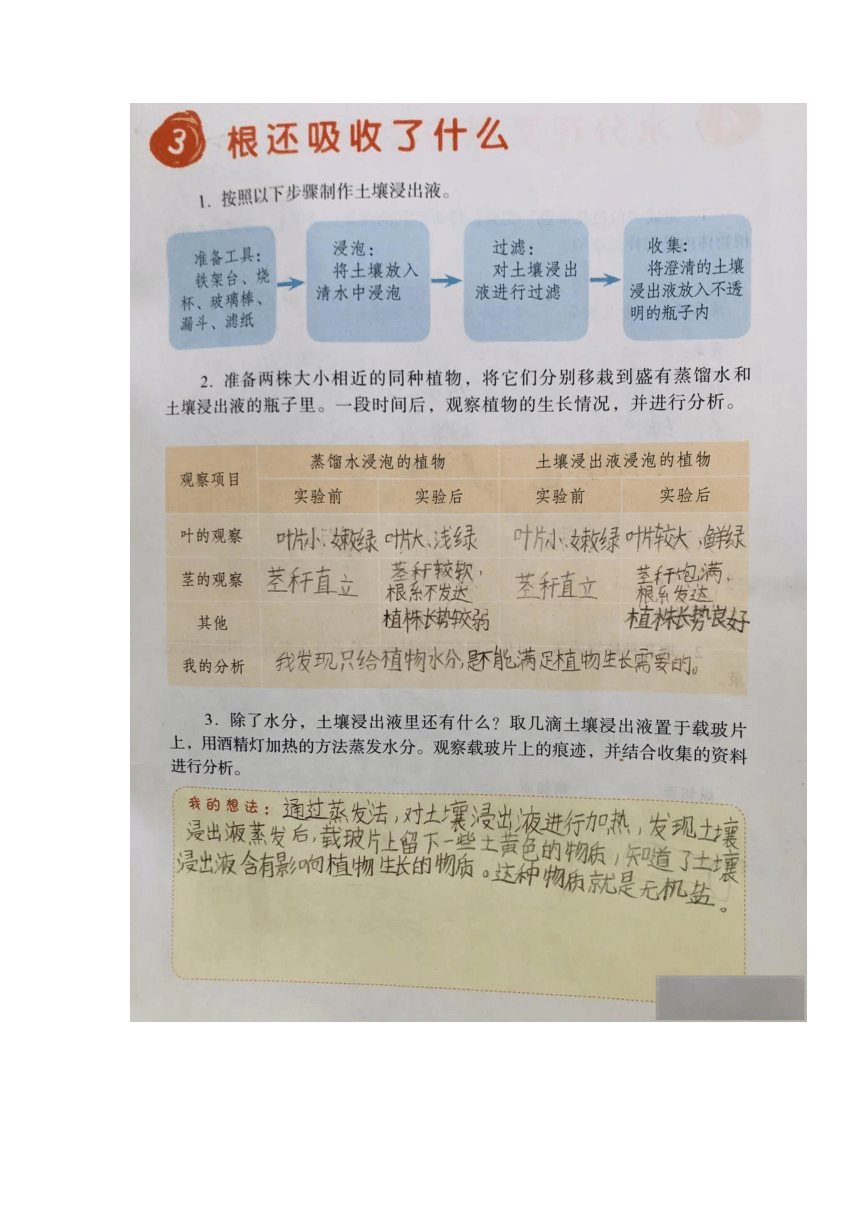 3 根还吸收了什么
1. 按照以下步骤制作土壤浸出液。
准备工具:
铁架台、烧
杯、玻璃棒、
漏斗、滤纸
浸泡:
将土壤放入
清水中浸泡
过滤:
对土壤浸出
液进行过滤
收集:
将澄清的土壤
浸出液放入不透
明的瓶子内
2. 准备两株大小相近的同种植物，将它们分别移栽到盛有蒸馏水和
土壤浸出液的瓶子里。一段时间后，观察植物的生长情况，并进行分析。
观察项目 蒸馏水浸泡的植物 土壤浸出液浸泡的植物
实验前 实验后 实验前 实验后
叶的观察 叶片小、嫩绿 叶片大、浅绿 叶片小、嫩绿 叶片较大、鲜绿
茎的观察 茎秆直立 茎秆较软， 茎秆直立 茎秆饱满，
根系不发达 根系发达
其他 植株长势较弱 植株长势良好
我的分析 我发现只给植物水分,是不能满足植物生长需要的。
3. 除了水分，土壤浸出液里还有什么？取几滴土壤浸出液置于载玻片
上，用酒精灯加热的方法蒸发水分。观察载玻片上的痕迹，并结合收集的资料
进行分析。
我的想法: 通过蒸发法，对土壤浸出液进行加热，发现土壤
浸出液蒸发后，载玻片上留下一些土黄色的物质，知道了土壤
浸出液含有影响植物生长的物质。这种物质就是无机盐。